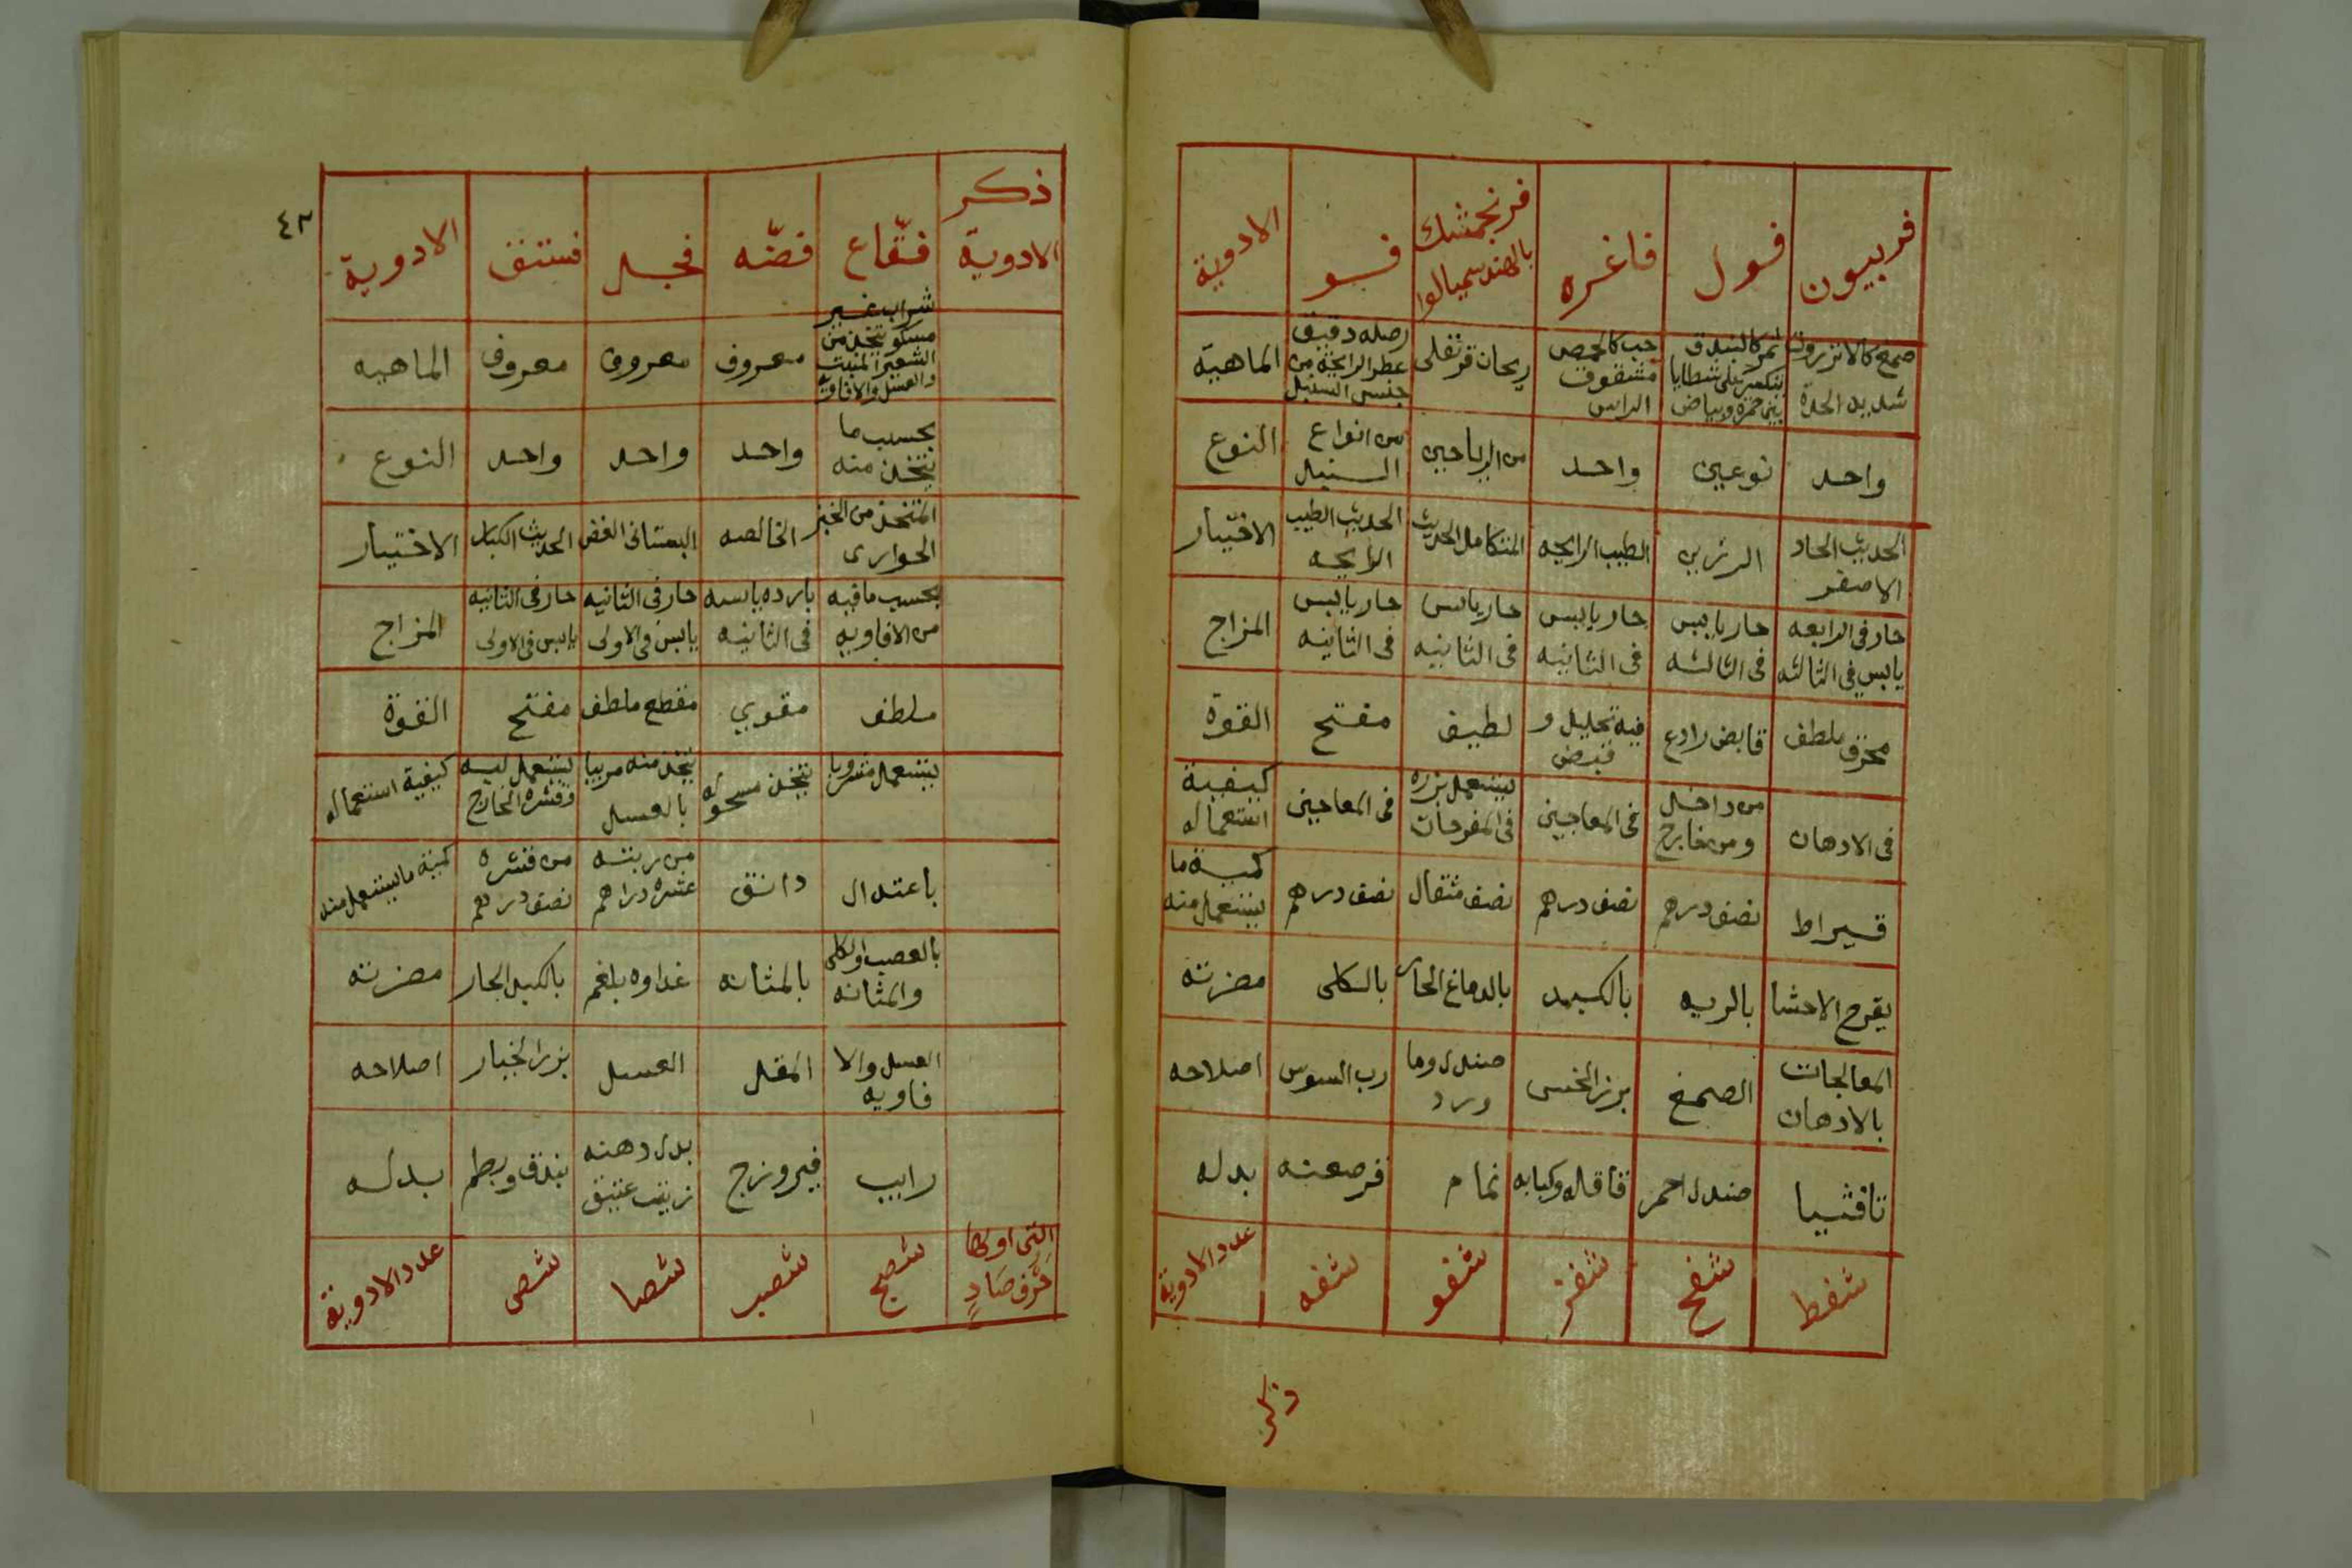 فربيون فول فاغره فرنجمشك بالهند سميالوا فو الادوية
صمغ كالانزروت شديد الحدة
ثمر كالبندق ينكسر على شظايا بين حمره وبياض
حب كالحمص مشقوق الراس
ريحان قرنفلى
اصله دقيق عطر الرايحة من جنس السنبل
الماهية
واحد نوعين واحد من الرياحين من انواع السنبل النوع
الحديث الحاد الاصفر
الرزين
الطيب الرايحه
المتكامل الحديث
الحديث الطيب الرايحه
الاختيار
حار فى الرابعه يابس فى الثالثه
حار يابس فى الثالثه
حار يابس فى الثانيه
حار يابس فى الثانيه
حار يابس فى الثانيه
المزاج
محرق ملطف
قابض رادع
فيه تحليل و قبض
لطيف
مفتح
القوة
فى الادهان
من داخل ومن خارج
فى المعاجين
يستعمل بزره فى المفرحات
فى المعاجين
كيفية استعماله
قيراط
نصف درهم
نصف درهم
نصف مثقال
نصف درهم
كمية ما يستعمل منه
يقرح الاحشا
بالريه
بالكبد
بالدماغ الحار
بالكلى
مضرته
المعالجات بالادهان
الصمغ
بزر الخس
صندل وما ورد
رب السوس
اصلاحه
تافثيا
صندل احمر
قاقله وكبابه
نمام
قرصعنه
بدله
شفط شفح شفز شفو شفه عدد الادوية
ذكر
٤٢
ذكر الادوية فقّاع فضّه فجل فستق الادوية
شراب غير مسكر يتخذ من الشعير المنبت والعسل والافاويه
معروف
معروف
معروف
الماهيه
بحسب ما يتخذ منه
واحد
واحد
واحد
النوع
المتخذ من الخبز الحوارى
الخالصه
البستانى الغض
الحديث الكبار
الاختيار
بحسب ما فيه من الافاويه
بارده يابسه فى الثانيه
حار فى الثانيه يابس فى الاولى
حار فى الثانيه يابس فى الاولى
المزاج
ملطف
مقوي
مقطع ملطف
مفتح
القوة
يستعمل مشروبا
يتخذ مسحوله
يتخذ منه مربيا بالعسل
يستعمل لبه وقشره الخارج
كيفية استعماله
باعتدال
دانق
من ربته عشره دراهم
من قشره نصف درهم
كمية ما يستعمل منه
بالعصب والكلى والمثانه
بالمثانه
غداوه بلغم
بالكبد الحار
مضرته
العسل والا فاويه
المقل
العسل
بزر الخيار
اصلاحه
رايب
فيروزج
بدل دهنه زيت عتيق
بندق وبطم
بدله
التى اولها حرف صاد
شصج شصب شصا شص عدد الادوية